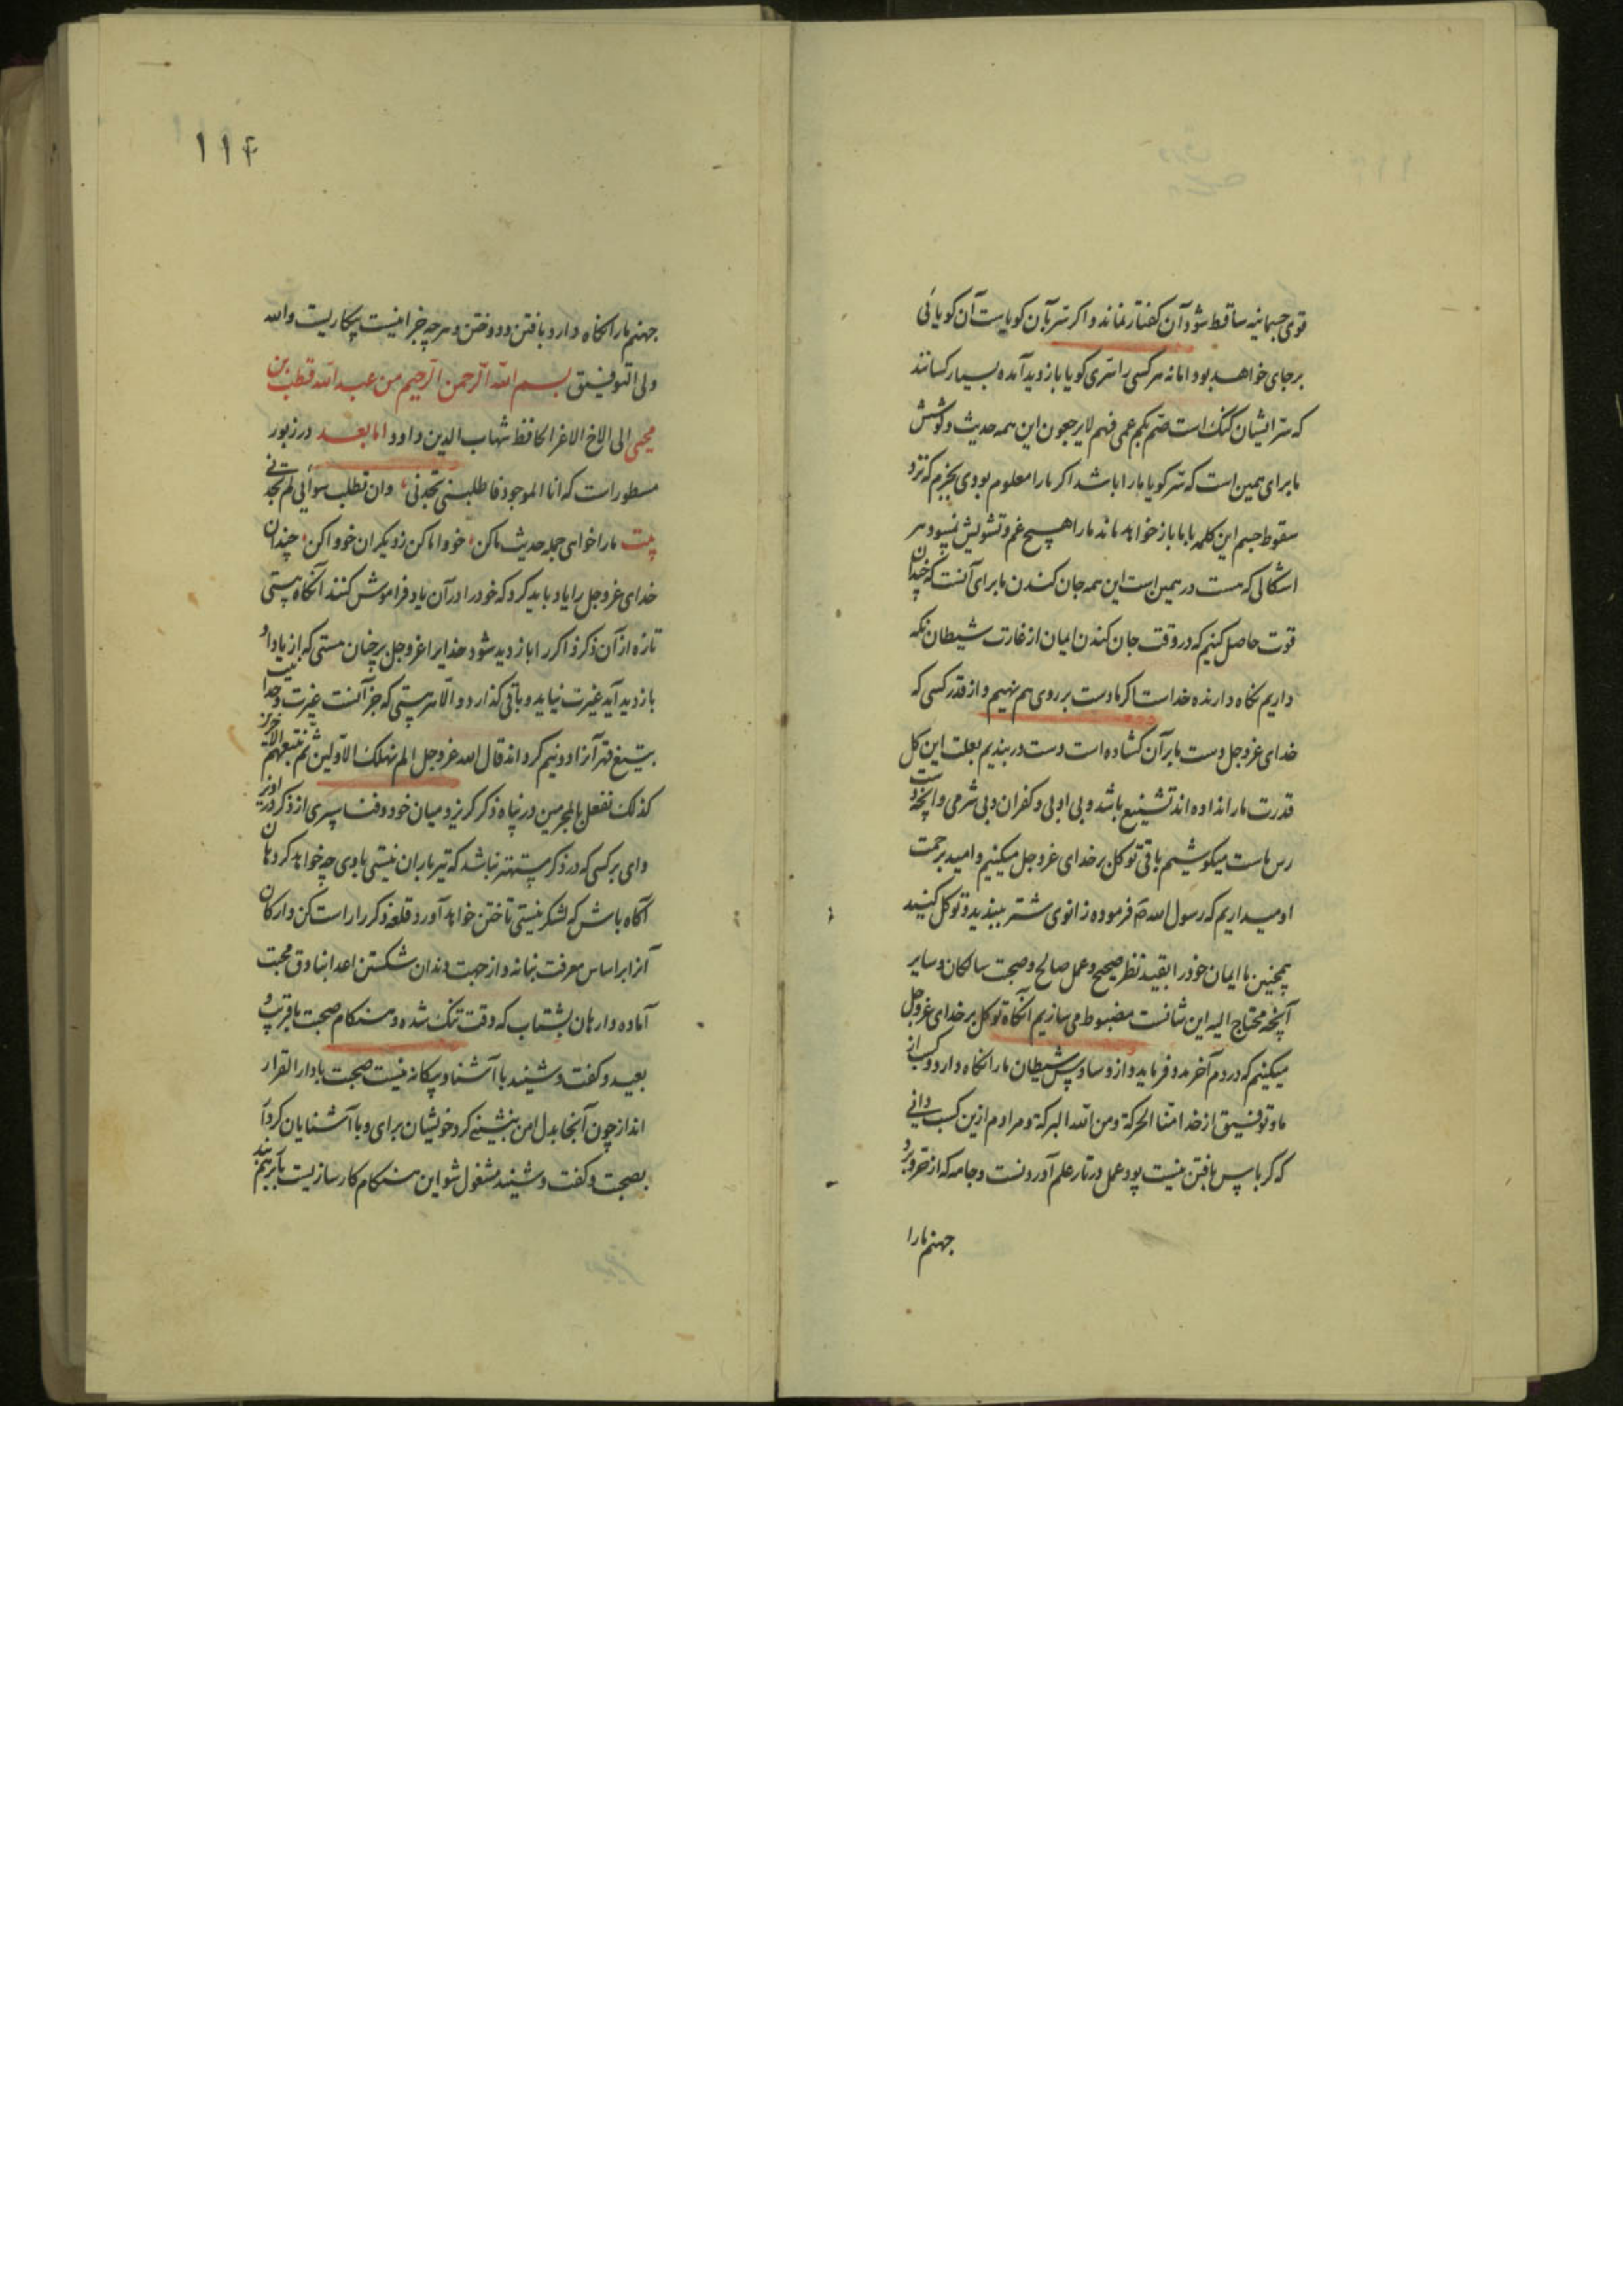 قوی جسمانیه ساقط شود آن کفتار نماند و اکر سر بآن کویاست آن کویائی
برجای خواهد بود اما نه هر کسی را سری کویا بازدید آمده بسیار کسانند
که سر ایشان کنک است صم بکم عمی فهم لایرجعون این همه حدیث و کوشش
ما برای همین است که سر کویا ما را باشد اکر ما را معلوم بودی بجزم که نزد
سقوط جسم این کلمه با ما باز خواهد ماند ما را هیچ غم و تشویش نبود هر
اشکالی که هست در همین است این همه جان کندن ما برای آنست که چندان
قوت حاصل کنیم که در وقت جان کندن ایمان از غارت شیطان نکه
داریم نکاه دارنده خداست اکر ما دست بر روی هم نهیم و از قدر کسی که
خدای عزوجل دست ما بر آن کشاده است دست در بندیم بعلت این کل
قدرت ما را نداده اند تشنیع باشد و بی ادبی و کفران و بی شرمی و آنچه دست
رس ماست میکوشیم باقی توکل بر خدای عزوجل میکنیم و امید برحمت
او میداریم که رسول الله فرموده زانوی شتر ببندید و توکل کنید
همچنین ما ایمان خود را بقید نظر صحیح و عمل صالح و صحبت سالکان و سایر
آنچه محتاج الیه این شانست مضبوط می سازیم آنکاه توکل بر خدای عزوجل
میکنیم که در دم آخر مدد فرماید و از وساوس شیطان ما را نکاه دارد و کسب از
ما و توفیق از خدا منا الحرکة و من الله البرکة و مرادم ازین کسب دانی
که کرباس بافتن نیست پود عمل در تار علم آوردنست و جامه که از حر و برد
جهنم ما را
۱۱۴
جهنم ما را نکاه دارد بافتن و دوختن و هرچه جز اینست بیکاریست والله
ولی التوفیق بسم الله الرحمن الرحیم من عبد الله قطب بن
محیی الی الاخ الاعز الحافظ شهاب الدین داود اما بعد در زبور
مسطور است که انا الموجود فاطلبنی تجدنی وان تطلب سوائی لم تجدنی
بیت ما را خواهی جمله حدیث ما کن خو وا ما کن ز دیکران خو وا کن چندان
خدای عزوجل را یاد باید کرد که خود را در آن یاد فراموش کنند آنکاه هستی
تازه از آن ذکر ذاکر را بازدید شود خدایرا عزوجل بر چنان هستی که از یاد او
بازدید آید غیرت نیاید و باقی کذارد و الا هر هستی که جز آنست غیرت خدا
بتیغ قهر آنرا دو نیم کرداند قال الله عزوجل الم نهلک الاولین ثم نتبعهم الاخرین
کذلک نفعل بالمجرمین در پناه ذکر کریز و میان خود و فنا سپری از ذکر در آویز
وای بر کسی که در ذکر مستهتر نباشد که تیر باران نیستی با وی چه خواهد کرد هان
آکاه باش که لشکر نیستی تاختن خواهد آورد قلعه ذکر را راست کن و ارکان
آنرا بر اساس معرفت بنا نه و از جهت دندان شکستن اعدا بنادق محبت
آماده دار هان بشتاب که وقت تنک شده و هنکام صحبت با قریب و
بعید و کفت و شنید با آشنا و بیکانه نیست صحبت با دار القرار
انداز چون آنجا بدل امن بنشینی کرد خویشان برای و با آشنایان کرد آ
بصحبت و کفت و شنید مشغول شو این هنکام کارسازیست